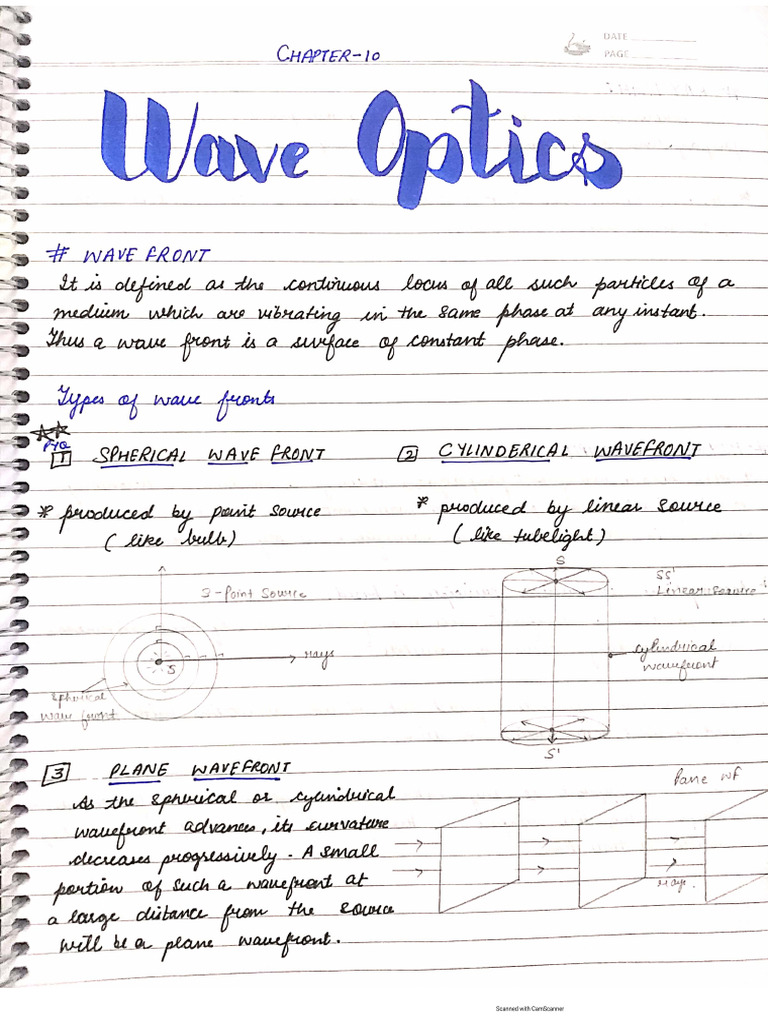 DATE
PAGE
CHAPTER-10
Wave Optics
# WAVE FRONT
It is defined as the continuous locus of all such particles of a
medium which are vibrating in the same phase at any instant.
Thus a wave front is a surface of constant phase.
Types of wave fronts
PYQ
1 SPHERICAL WAVE FRONT
* produced by point source
( like bulb)
3-Point Source
rays
S
spherical
wave front
2 CYLINDERICAL WAVEFRONT
* produced by linear source
( like tubelight)
S
SS'
Linear source
cylindrical
wavefront
S'
3 PLANE WAVEFRONT
As the spherical or cylindrical
wavefront advances, its curvature
decreases progressively. A small
portion of such a wavefront at
a large distance from the source
will be a plane wavefront.
Plane WF
rays.
Scanned with CamScanner